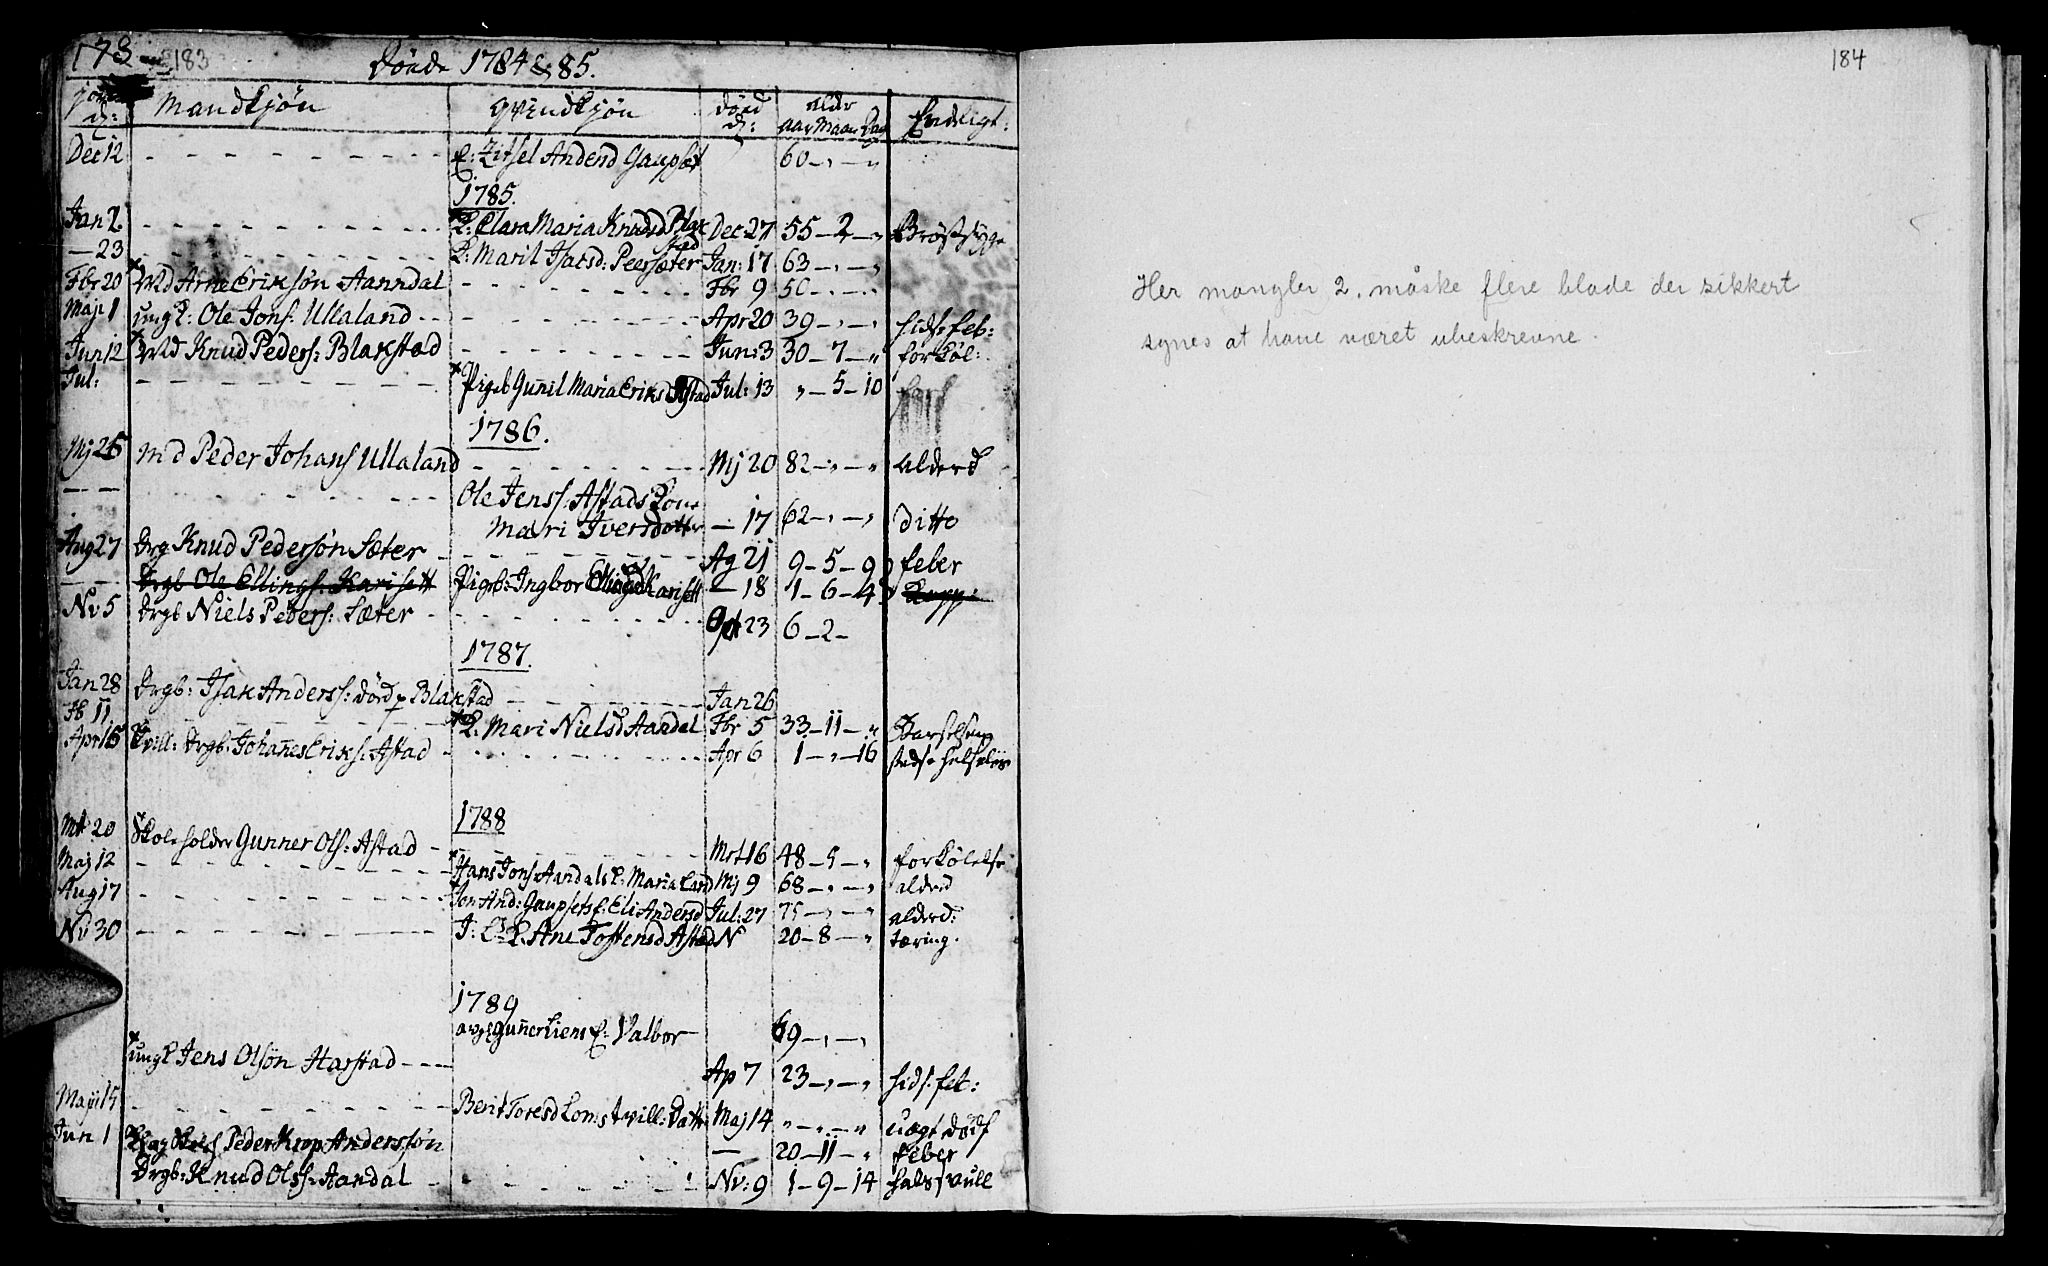 173 183
Døde 1784 & 85.
jord. d: Mandkjøn qvindkjøn død d: alder aar Maan Dag Endeligt:
Dec 12 - - - - K: Zitsel Andersd Gaupset 60 - „ - „
1785.
Jan 2. - - - - K: Clara Maria Knudsd Blakstad Dec 27 55 - 2 - „ Brøstsyge
— 23 - - - - K: Marit Isacsd: Peersæter Jan: 17 63 - „ - „
Fbr 20 Md Arne Eriksøn Aanndal - - - - Fbr 9 50 - „ - „
Maji 1 ungk: Ole Jons: Ullaland - - Apr 20 39 - „ - „ hids: feb:
Jun 12 Md Knud Peders: Blakstad - - - - Jun: 3 30 - 7 - „ forkøl:
Jul: - - - - Pigeb Gunil Maria Eriksd Astad Jul: 13 „ - 5 - 10
1786.
Mj 25 Md Peder Johans Ullaland - - - - Mj 20 82 - „ - „ alderd
— — - - - - Ole Jenss: Astads Kone
Mari Iversdotter — 17 62 - „ - „ ditto
Aug 27 Drg Knud Pedersøn Sæter - - - - Ag 21 9 - 5 - 9 feber
— — Drgb Ole Ellings: Karisett Pigeb: Ingbor Ellingsd Karisett — 18 1 - 6 - 4 Kopp:
Nv 5 Drgb Niels Peders: Sæter - - - - 23 6 - 2 -
1787.
Jan 28 Drgb: Isak Anderss: død p Blakstad - - - - Jan 26
Fb 11 - - - - K. Mari Nielsd Aandal Fbr 5 33 - 11 - „ Barselseng
Apr 15 Tvill: Drgb: Johanes Eriks: Astad - - - - Apr 6 1 - „ - 16 stedse helseløs
1788
Mt 20 Skoleholder Gunner Ols: Astad - - - - Mrt 16 48 - 5 - „ forkølelse
Maj 12 - - - - Hans Jons: Aandals K: Maria Land Mj 9 68 - „ - „ alderd
Aug 17 - - - - Jon And: Gaupsets f: Eli Andersd Jul: 27 75 - „ - „ alderd:
Nv 30 - - - - K. Ane Tostensd Astad N 20 - 8 - „ tæring.
1789
Gunnerliens K: Valbor — 69 - „ - „
ungk Jens Olsøn Harstad - - - Ap 7 23 - „ - „ hids: feb:
Maji 15 - - - - Berit Toresd Loms tvill: Datt: Maj 14 „ - „ - „ uægt døds
Jun 1 Peder Krop Anderssøn — 20 - 11 - „ feber
Drgb: Knud Olss: Aandal - - - - Nv: 9 1 - 9 - 14 halssvull
184
Her mangler 2. måske flere blade der sikkert
synes at have været ubeskrevne.